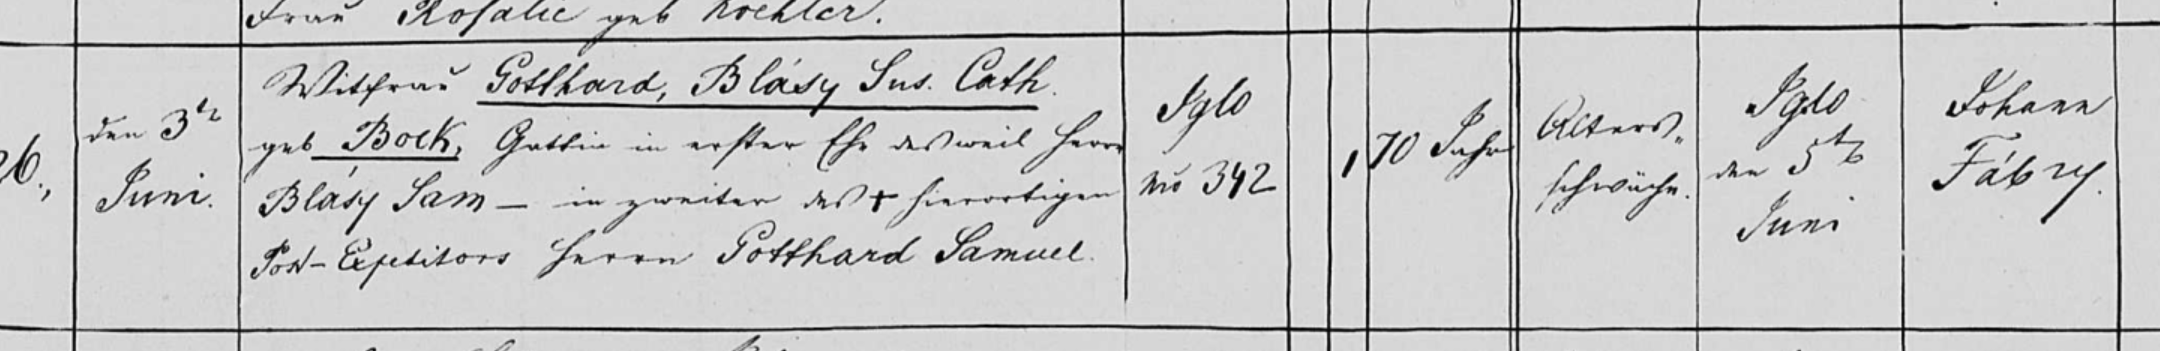 Frau Rosalie geb Koehler.
26.,
den 3ten
Juni.
Witfrau Gotthard, Blásy Sus. Cath.
geb Bock, Gattin in erster Ehe des weil Herrn
Blásy Sam – in zweiter des + hierortigen
Post-Expeditors Herrn Gotthard Samuel.
Iglo
No 342
1
70 Jahr
Alters-
schwäche.
Iglo
den 5ten
Juni
Johann
Fábry.